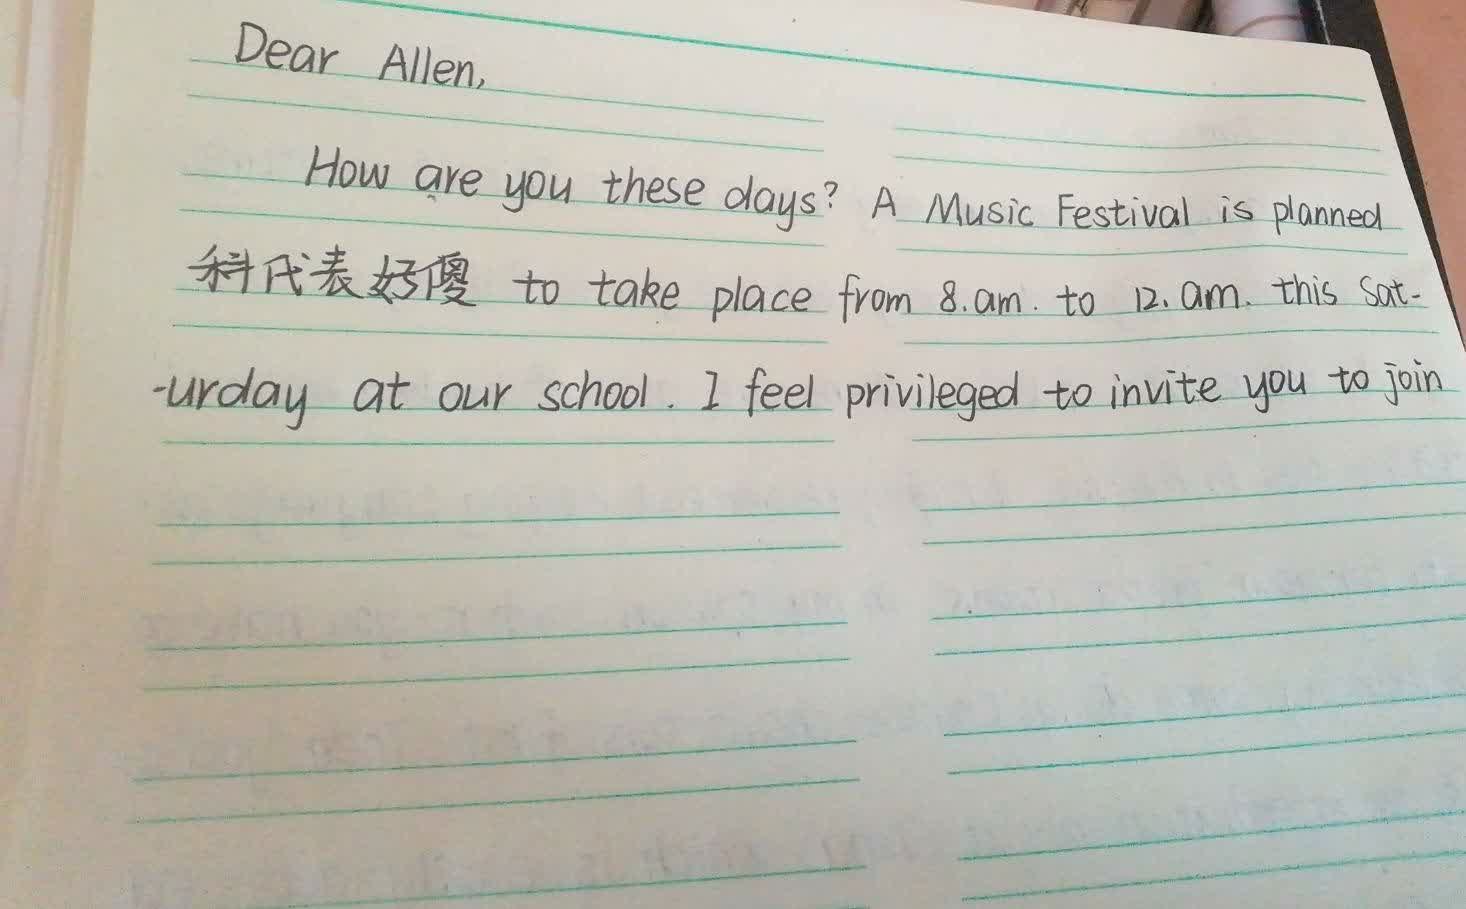 Dear Allen,
How are you these days? A Music Festival is planned
科代表好傻 to take place from 8.am. to 12.am. this Sat-
-urday at our school. I feel privileged to invite you to join